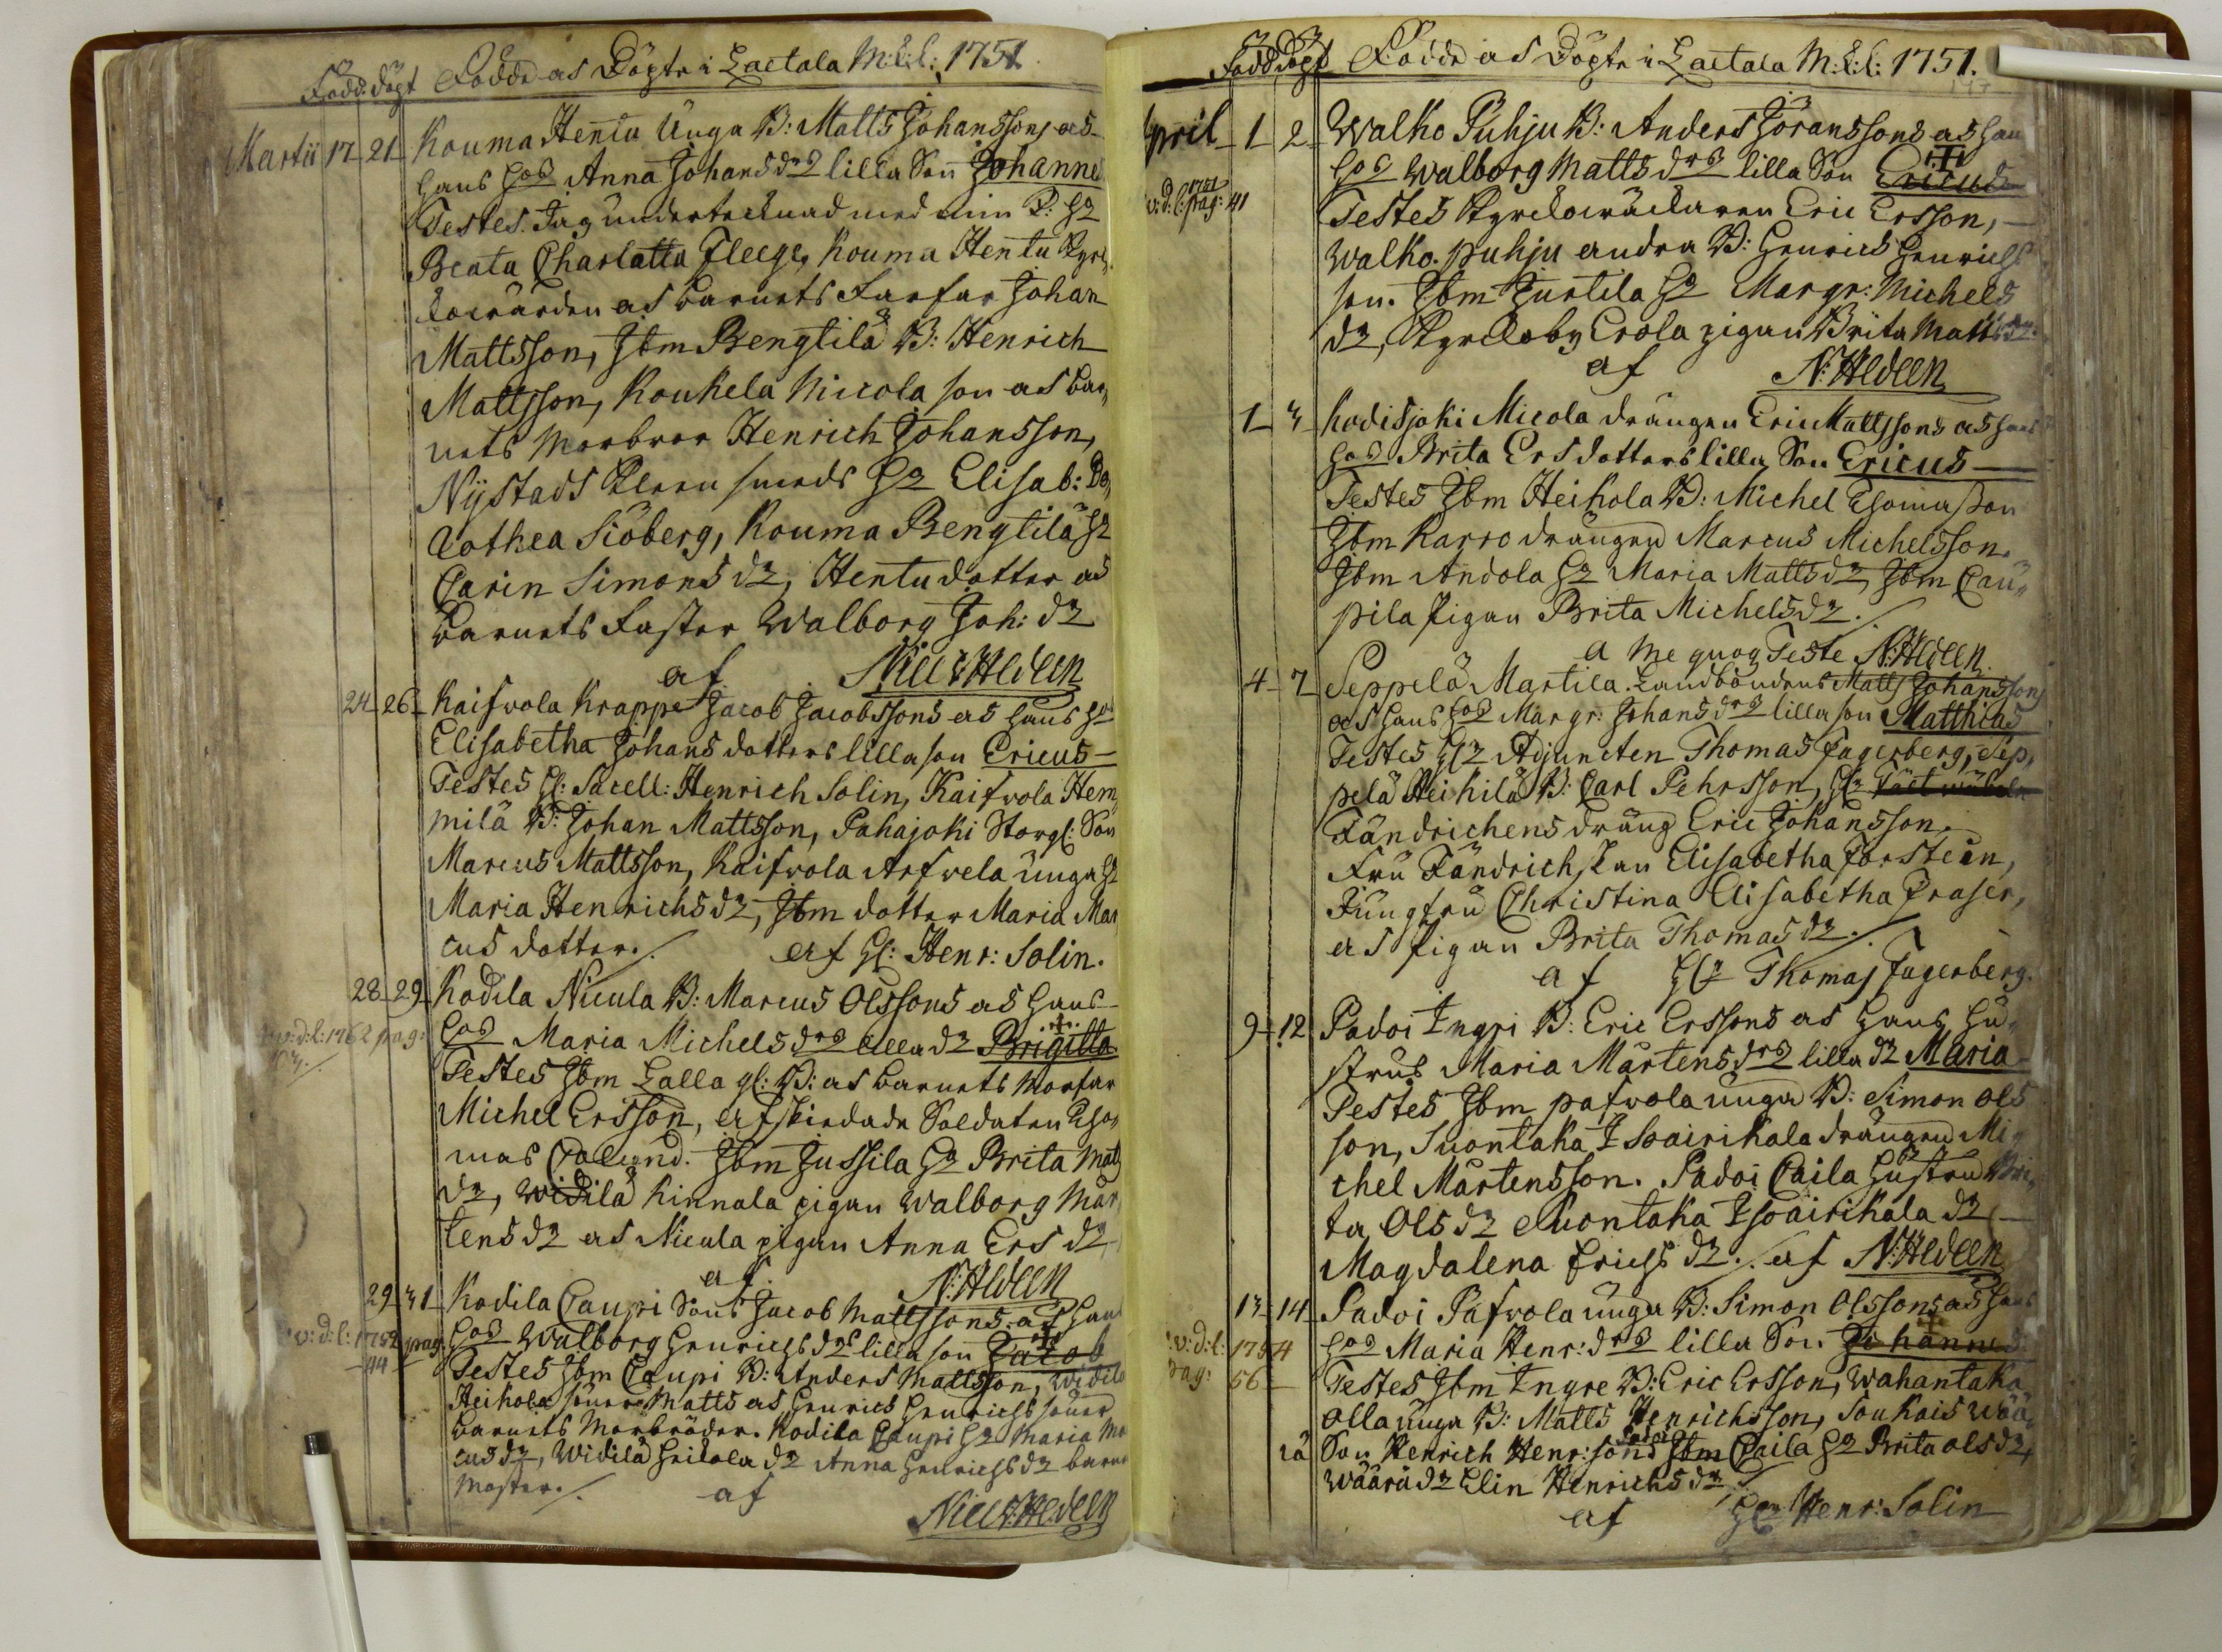 Född. Döpt Födde as Döpte i Laitala M:k:l: 1751.
Martii 17 21 Kouma Hentu Unga B: Matts Johanssons as
hans hos Anna Johans dr lilla Son Johannes
Testes. Jag undertecknad med min K: hu
Beata Charlatta Fleege, Kouma Hentu Kyrc,
kowärden as barnets Farfar Johan
Mattsson, Ibm Bengtilä B: Henrich
Mattsson, Koukela Niccola son as bar,
nets Morbror Henrich Johansson,
Nystads smeds hu Elisab: Do,
rothea Siöberg, Kouma Bengtilä hu
Carin Simons dr, Hentu dotter as
barnets Faster Walborg Joh: dr
af Niels Aldeen
24 26 Kaifvola Krappe Jacob Jacobssons as hans hos
Elisabetha Johans dotters lilla son Ericus
Testes Hl: Sacell: Henrich Solin, Kaifvola Hem,
milä B: Johan Mattsson, Pahajoki Storgl: Son
Marcus Mattsson, Kaifvola Arfvela unga hu
Maria Henrichs dr, Ibm dotter Maria Mar
cus dotter. af Hl: Henr: Solin.
28 29 Kodila Nicula B: Marcus Olssons as hans
v:d:l: 1762 pag: hos Maria Michels drs lilla dr Brigitta
Testes Ibm Lalla gl: B: as barnets Morfar
Michel Ersson, afskiedade Soldaten Tho,
mas . Ibm Jussila hu Brita Matts
dr, Widilä Kinnala pigan Walborg Mår,
tens dr as Nicula pigan Anna Ers dr
af. N: Aldeen
29 31 Kodila Caupi Sons Jacob Mattssons as hans
v:d:l: 1752 pag: hos Walborg Henrichs drs lilla son Jacob
44 Testes Ibm Caupi B: Anders Mattsson, Widilä
Heikola söner Matts as Henrich Henrichs söner
barnets Morbröder. Kodila Caupi hu Maria Mar
cus dr, Widilä Heikola dr Anna Henrichs dr barnets
Moster. af
Niels: Aldeen
Född Döpt Födde as Döpte i Laitala M:k:l: 1751.
April 1 2 Walko Puhju B: Anders Jöranssons as hans
hos Walborg Matts drs lilla Son Ericus
v:d:l: 1751 pag: 41 Testes Kyrckowäcktaren Eric Ersson,
Walko. puhju andra B: Henrich Henrichs
son. Ibm Jurtila hu Margr: Michels
dr, Kyrckoby Erola pigan Brita Matts dr.
af N: Aldeen
1 3 Kodisjoki Micola drängen Eric Mattssons as hans
hos Brita Ers dotters lilla Son Ericus
Testes Ibm Heikola B: Michel Thomasson
Ibm Karro drängen Marcus Michelsson.
Ibm Andola hu Maria Matts dr, Ibm Cau,,
pila pigan Brita Michels dr.
a me quoq Teste N: Aldeen.
4 7 Seppelä Martila. Landbondens Matts Johanssons
as hans hos Margr: Johans drs lilla son Matthias
Testes Hr Adjuncten Thomas Fagerberg, Sep,
pelä Heikilä B: Carl Pehrsson, Hr
Fändrichens dräng Eric Johansson.
Fru Fändrichskan Elisabetha Forsteen,
Jungfru Christina Elisabetha Fraser,
as pigan Brita Thomas dr.
af Hr Thomas Fagerberg.
9 12 Padoi Ingri B: Eric Erssons as hans hu,
strus Maria Mårtens drs lilla dr Maria
Testes Ibm pafvola unga B: Simon Ols
son, Suontaka I Soairikala drängen Mi,
chel Mårtensson. Padoi Caila hustru Bri,
ta Ols dr Suontaka I soairikala dr
Magdalena Erichs dr. af N: Aldeen
13 14 Padoi Pafvola unga B: Simon Olssons as hans
v:d:l: 1754 hos Maria Henr: drs lilla Son Johannes
pag: 56 Testes Ibm Ingre B: Eric Ersson, Wahantaka
Olla unga B: Matts Henrichsson, Soukais Wää,
rä Son Henrich Henr: sons Padoi Ibm Caila hu Brita Ols dr,
Wäärä dr Elin Henrichs dr
af Hr Henr: Solin